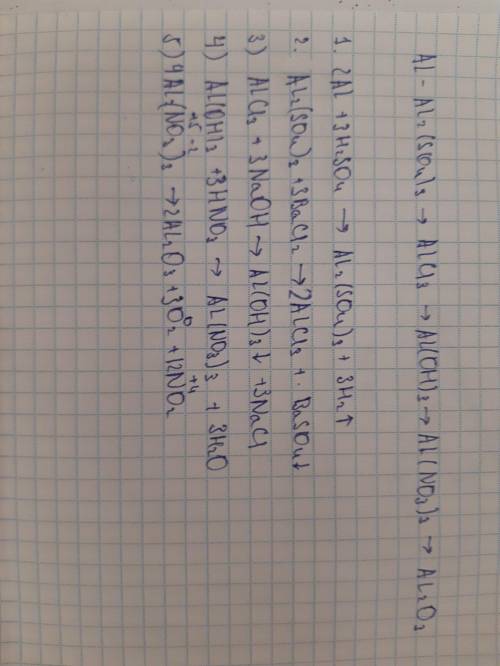 Al - Al₂(SO₄)₃ → AlCl₃ → Al(OH)₃ → Al(NO₃)₃ → Al₂O₃
1. 2Al + 3H₂SO₄ → Al₂(SO₄)₃ + 3H₂↑
2. Al₂(SO₄)₃ + 3BaCl₂ → 2AlCl₃ + BaSO₄↓
3) AlCl₃ + 3NaOH → Al(OH)₃↓ + 3NaCl
4) Al(OH)₃ + 3HNO₃ → Al(NO₃)₃ + 3H₂O
+5 -2 0 +4
5) 4Al(NO₃)₃ → 2Al₂O₃ + 3O₂ + 12NO₂